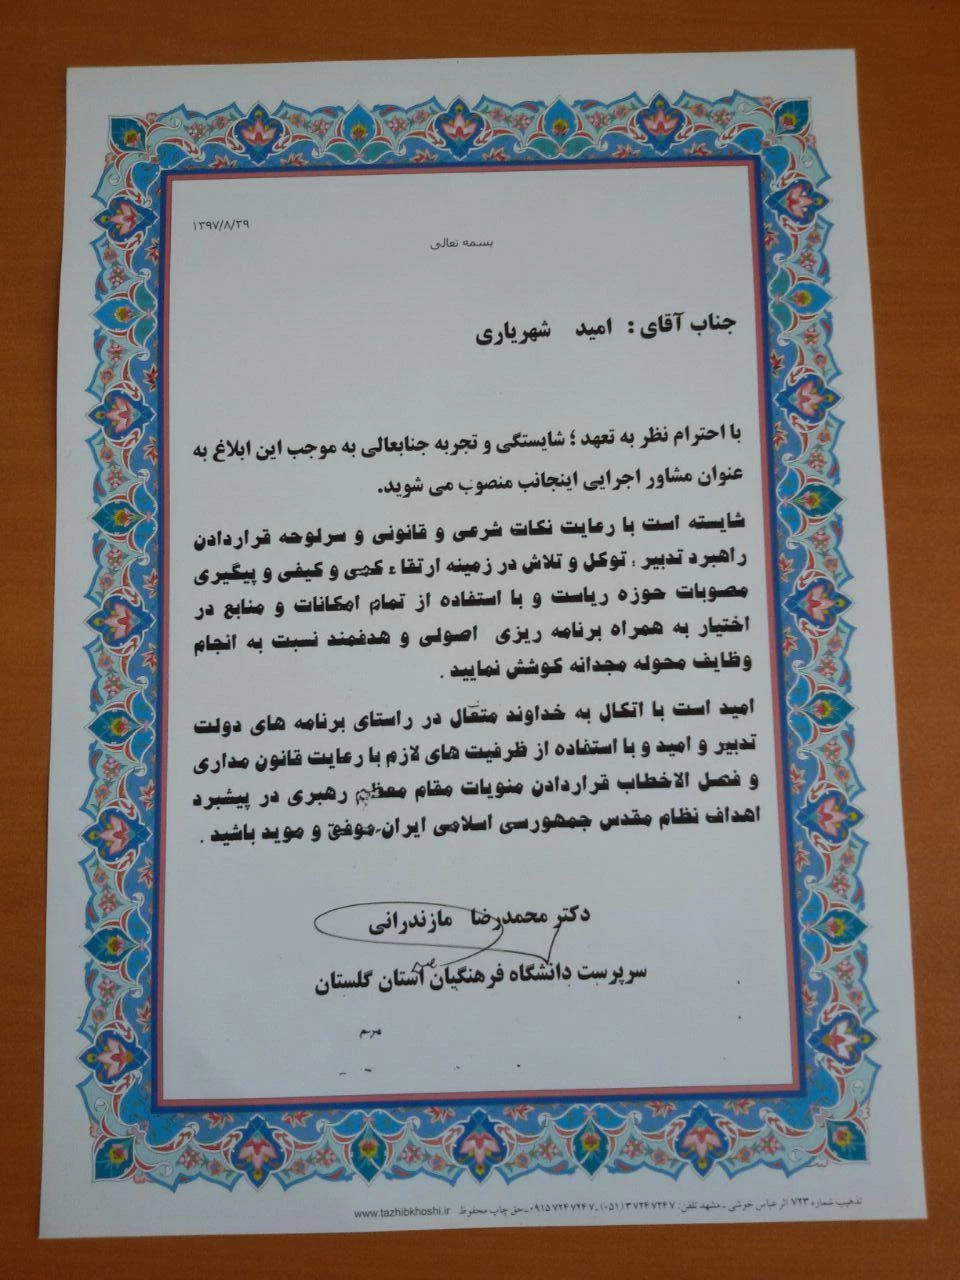 ۱۳۹۷/۸/۲۹
بسمه تعالی
جناب آقای : امید شهریاری
با احترام نظر به تعهد ؛ شایستگی و تجربه جنابعالی به موجب این ابلاغ به
عنوان مشاور اجرایی اینجانب منصوب می شوید.
شایسته است با رعایت نکات شرعی و قانونی و سرلوحه قراردادن
راهبرد تدبیر ، توکل و تلاش در زمینه ارتقاء کمی و کیفی و پیگیری
مصوبات حوزه ریاست و با استفاده از تمام امکانات و منابع در
اختیار به همراه برنامه ریزی اصولی و هدفمند نسبت به انجام
وظایف محوله مجدانه کوشش نمایید .
امید است با اتکال به خداوند متعال در راستای برنامه های دولت
تدبیر و امید و با استفاده از ظرفیت های لازم با رعایت قانون مداری
و فصل الاخطاب قراردادن منویات مقام معظم رهبری در پیشبرد
اهداف نظام مقدس جمهورسی اسلامی ایران،موفق و موید باشید .
دکتر محمدرضا مازندرانی
سرپرست دانشگاه فرهنگیان استان گلستان
تذهیب شماره ۷۲۳ اثر عباس خوشی - مشهد تلفن: ۳۷۲۴۷۲۴۷ (۰۵۱) - ۰۹۱۵۷۲۴۷۲۴۷ - حق چاپ محفوظ www.tazhibkhoshi.ir